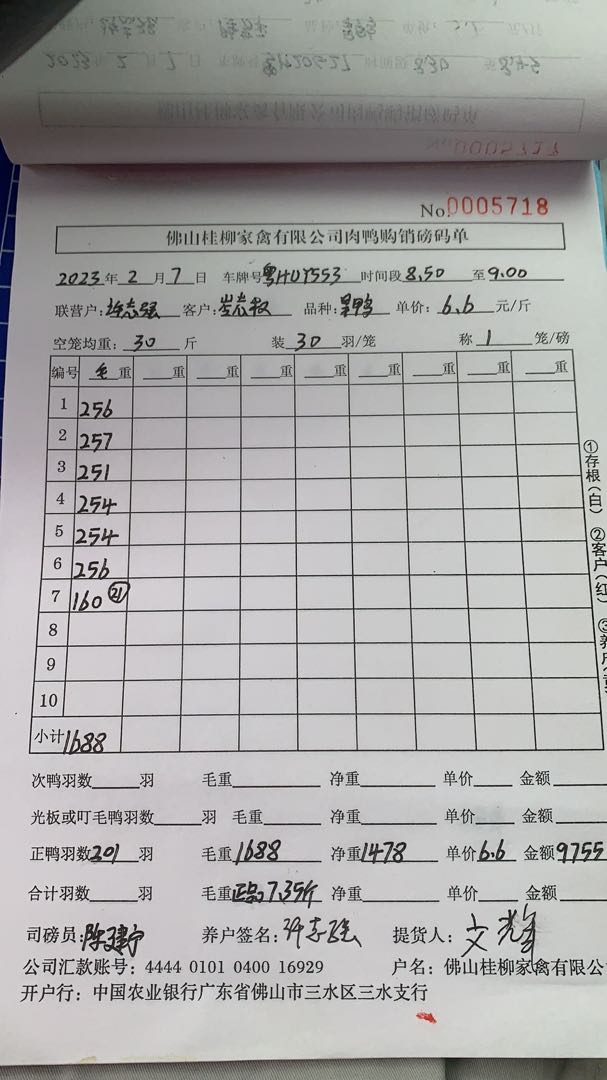 No.0005718
佛山桂柳家禽有限公司肉鸭购销磅码单
2023年 2 月 7 日 车牌号粤HUY553 时间段8.50 至9.00
联营户:许志强 客户:岑志权 品种: 单价:6.6 元/斤
空笼均重:30 斤 装 30 羽/笼 称 1 笼/磅
编号 毛重 重 重 重 重 重 重 重
1 256
2 257
3 251
4 254
5 254
6 256
7 160 21
8
9
10
小计 1688
①存根(白) ②客户(红)
次鸭羽数 羽 毛重 净重 单价 金额
光板或叮毛鸭羽数 羽 毛重 净重 单价 金额
正鸭羽数201 羽 毛重1688 净重1478 单价6.6 金额9755
合计羽数 羽 毛重正品7.35斤 净重 单价 金额
司磅员:陈建宁 养户签名:许志强 提货人:
公司汇款账号:4444 0101 0400 16929 户名:佛山桂柳家禽有限公
开户行:中国农业银行广东省佛山市三水区三水支行